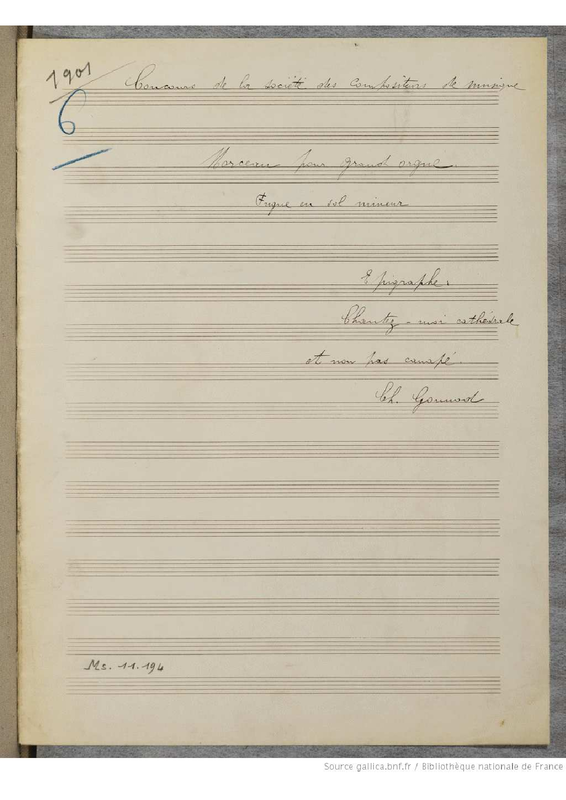 1901
Concours de la société des compositeurs de musique
6
Morceau pour grand orgue.
Fugue en sol mineur
Epigraphe:
Chantez-moi cathédrale
et non pas canapé
Ch. Gounod
Ms. 11.194
Source gallica.bnf.fr / Bibliothèque nationale de France